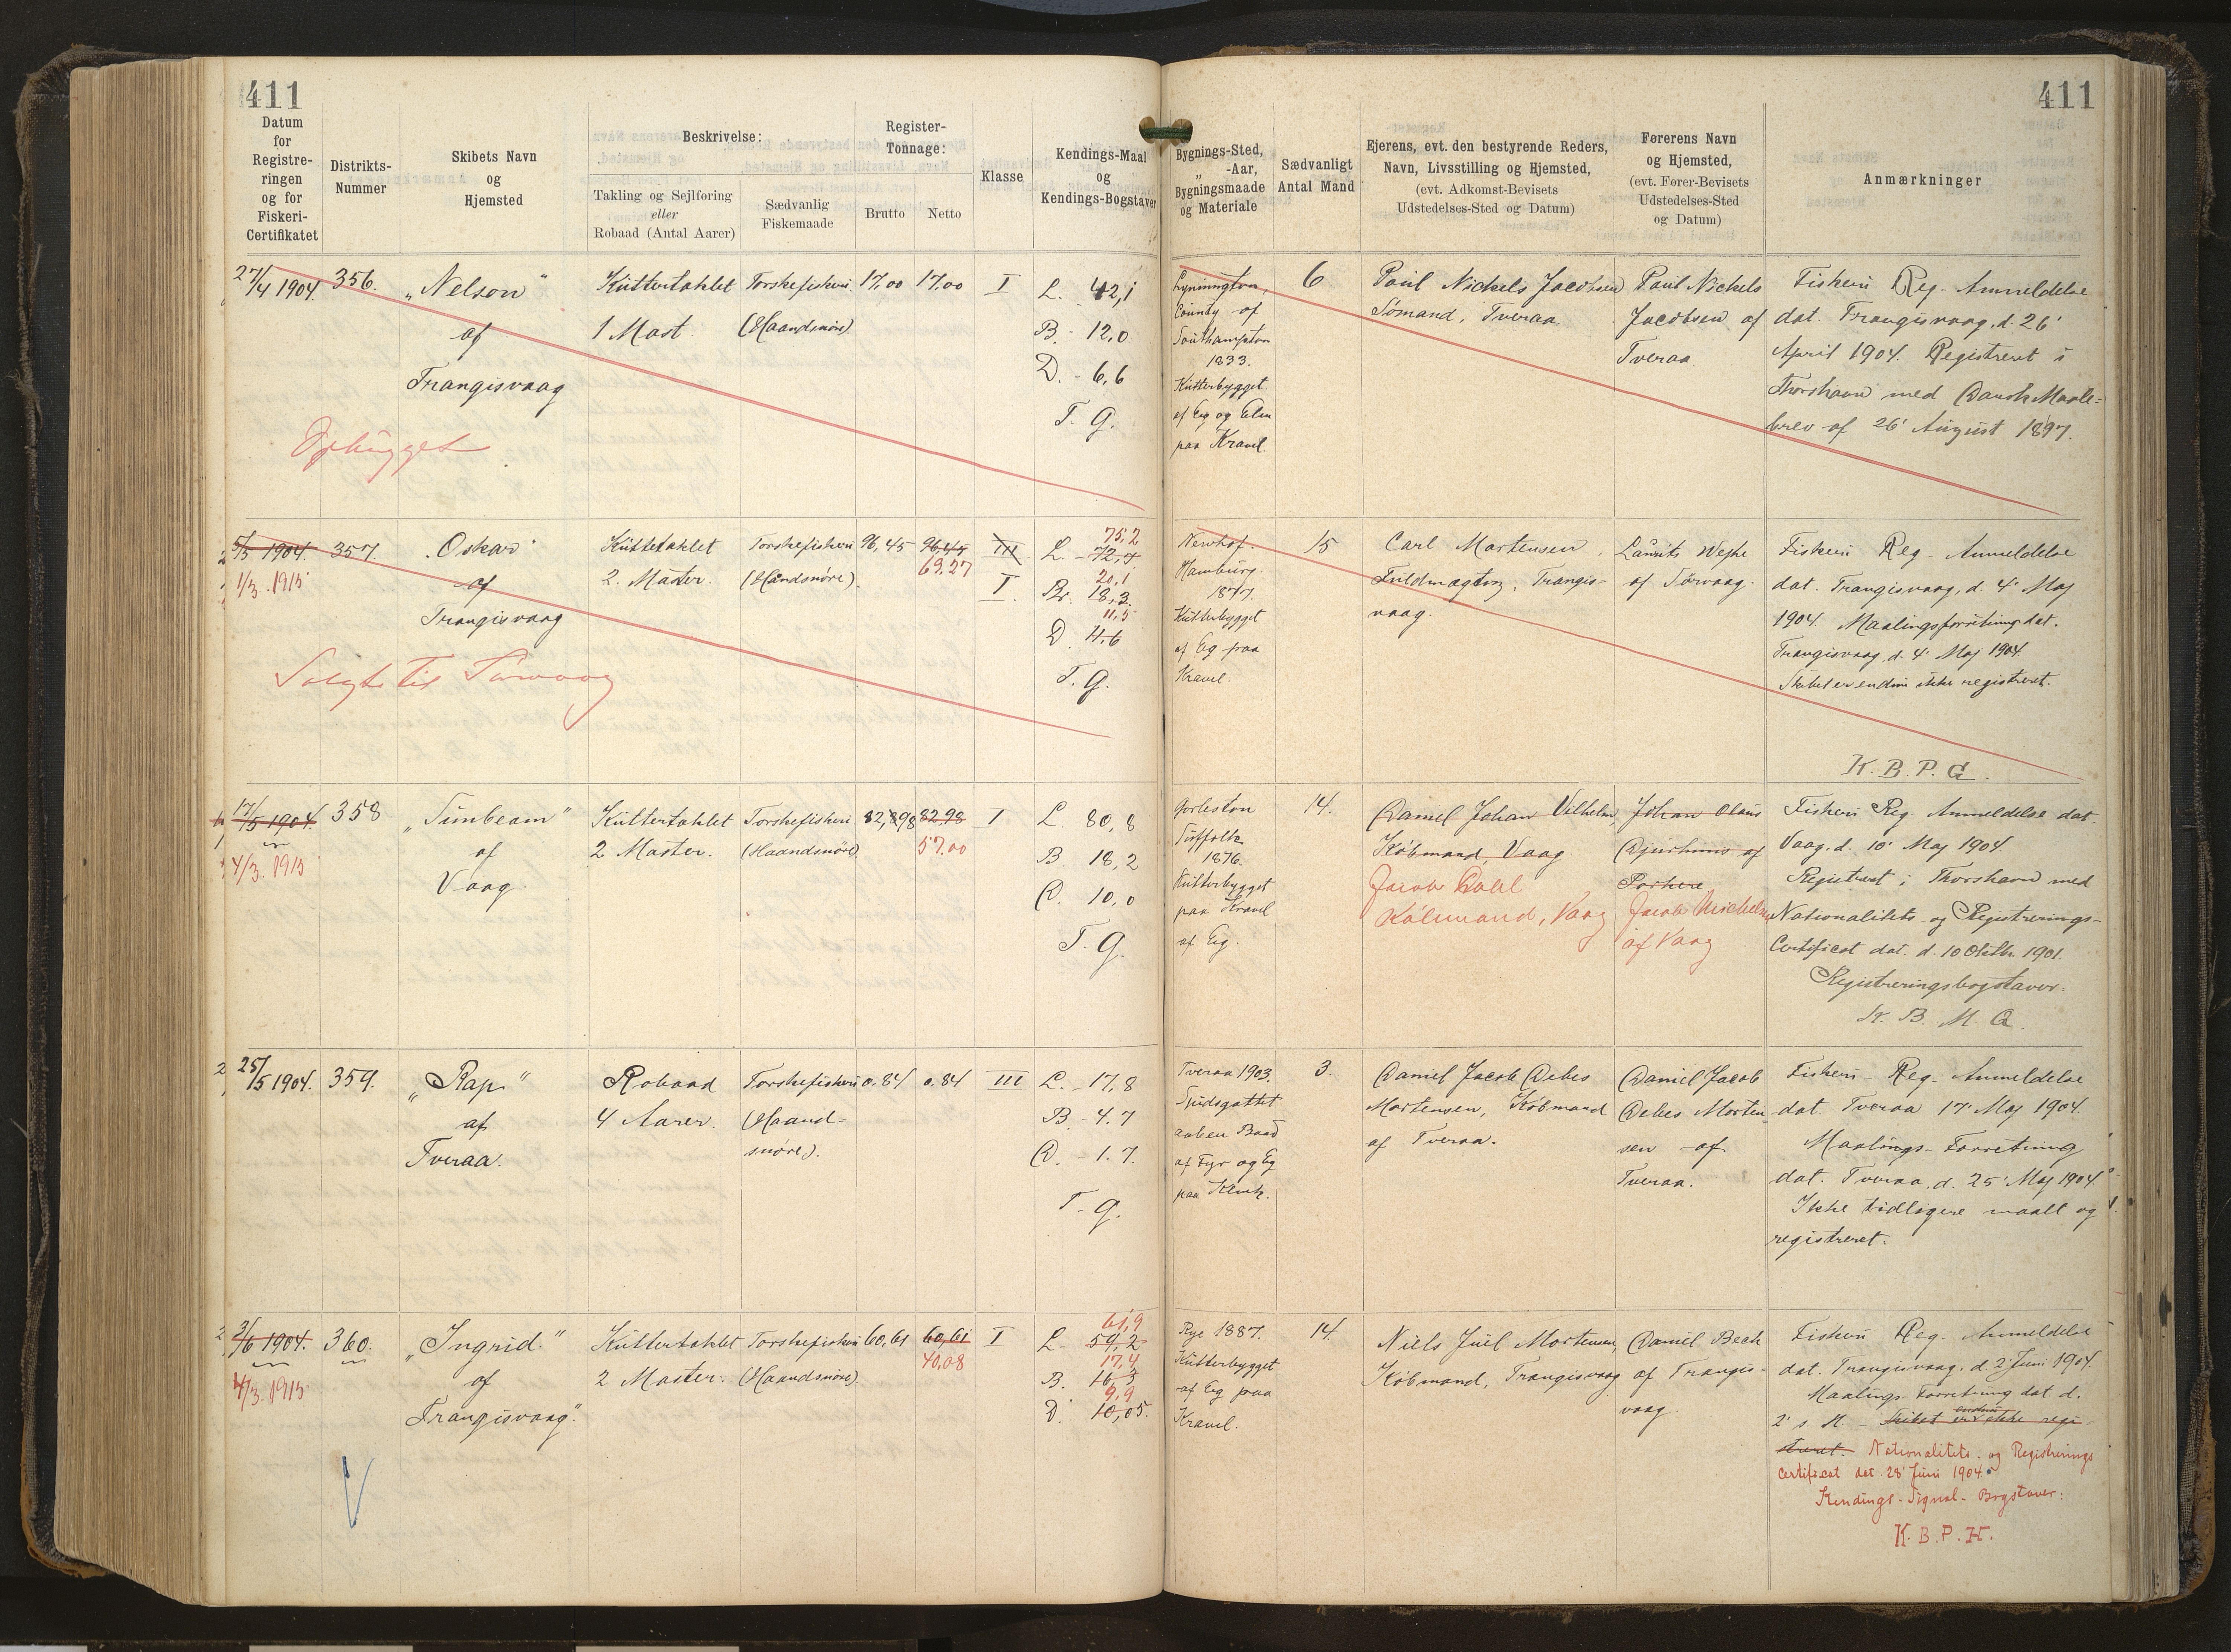 411
411
Datum
for
Registre-
ringen
og for
Fiskeri-
Certifikatet
Distrikts-
Nummer
Skibets Navn
og
Hjemsted
Beskrivelse:
Takling og Sejlføring
eller
Robaad (Antal Aarer)
Sædvanlig
Fiskemaade
Register-
Tonnage:
Brutto
Netto
Klasse
Kendings-Maal
og
Kendings-Bogstaver
Bygnings-Sted,
„ -Aar,
Bygningsmaade
og Materiale
Sædvanligt
Antal Mand
Ejerens, evt. den bestyrende Reders,
Navn, Livsstilling og Hjemsted,
(evt. Adkomst-Bevisets
Udstedelses-Sted og Datum)
Førerens Navn
og Hjemsted,
(evt. Fører-Bevisets
Udstedelses-Sted
og Datum)
Anmærkninger
27/4 1904.
356.
„Nelson“
af
Trangisvaag
Ophugget
Kuttertaklet
1 Mast.
Torskefiskeri
(Haandsnøre)
17,00
17,00
I
L. 42,1
B. - 12,0
D. - 6,6
T. G.
Lymington,
County of
Southampton
1833.
Kutterbygget
af Eg og Elm
paa Kravel.
6
Poul Nickels Jacobsen
Sømand, Tveraa.
Poul Nickels
Jacobsen af
Tveraa
Fiskeri Reg. Anmeldelse
dat. Trangisvaag, d. 26'
April 1904. Registreret i
Thorshavn med Dansk Maale-
brev af 26' August 1897.
5/5 1904.
1/3. 1915
357.
„Oskar“
af
Trangisvaag
Solgt til Sørvaag
Kuttertaklet
2. Master.
Torskefiskeri
(Handsnøre).
96,45
96,45
69,27
III
I.
75,2
L. - 72,7
20,1
Br. 18,3.
11,5
D. 11,6
T. G.
Newhof.
Hamburg.
1877.
Kutterbygget
af Eg paa
Kravel.
15
Carl Mortensen,
Fuldmægtig, Trangis-
vaag.
Laurits Wejhe
af Sørvaag.
Fiskeri Reg. Anmeldelse
dat. Trangisvaag, d. 4' Maj
1904. Maalingsforretning dat.
Trangisvaag, d. 4' Maj 1904.
Skibet er endnu ikke registreret.
K. B. P. G.
17/5 1904.
4/3. 1915
358
„Sunbeam“
af
Vaag.
Kuttertaklet
2 Master.
Torskefiskeri
(Haandsnøre)
82,98
82,98
57.00
I
L. 80,8
B. 18,2
D. 10,0
T. G.
Gorleston
Suffolk
1876.
Kutterbygget
paa Kravel
af Eg.
14.
Daniel Johan Vilhelm,
Købmand, Vaag
Jacob Dahl
Købmand, Vaag
Johan Olaus
Djurhuus af
Porkere
Jacob Michelsen
af Vaag
Fiskeri Reg. Anmeldelse dat
Vaag, d. 10' Maj 1904.
Registreret i Thorshavn med
Nationalitets og Registrerings-
Certificat dat. d. 10 Oktbr. 1901.
Registreringsbogstaver:
N. B. M. Q.
25/5 1904.
359.
„Rap“
af
Tveraa.
Robaad
4 Aarer.
Torskefiskeri
(Haand-
snøre).
0.84
0.84
III
L. - 17,8
B. - 4.7
D. - 1.7.
T. G.
Tveraa 1903.
Spidsgattet
aaben Baad
af Fyr og Eg
paa Klink.
3.
Daniel Jacob Debes
Mortensen, Købmand
af Tveraa.
Daniel Jacob
Debes Morten-
sen af
Tveraa.
Fiskeri - Reg. Anmeldelse
dat. Tveraa 17' Maj 1904.
Maalings-Forretning
dat. Tveraa, d. 25' Maj 1904.
Ikke tidligere maalt og
registreret.
3/6 1904.
4/3. 1915
360.
„Ingrid“
af
Trangisvaag“.
Kuttertaklet
2 Master.
Torskefiskeri
(Haandsnøre).
60,61
60,61
40,08
I
61,9
L. 59,2
17,4
B. 16,3
9,9
D. 10,05.
Rye 1887.
Kutterbygget
af Eg paa
Kravel.
14.
Niels Juel Mortensen,
Købmand, Trangisvaag
Daniel Bech
af Trangis-
vaag.
Fiskeri Reg. Anmeldelse
dat. Trangisvaag, d. 2' Juni 1904.
Maalings-Forretning dat d.
2' s. M. - Skibet er endnu ikke regi-
streret. Nationalitets- og Registrerings
Certificat dat 28' Juni 1904.
Kendings-Signal-Bogstaver:
K. B. P. H.